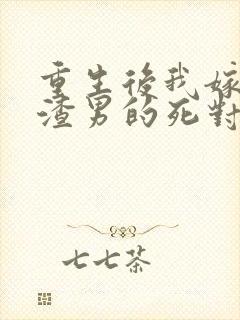 重生後我嫁
渣男的死對
七七茶